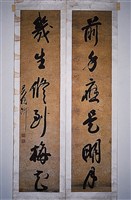 前身應是明月
幾生修到梅花